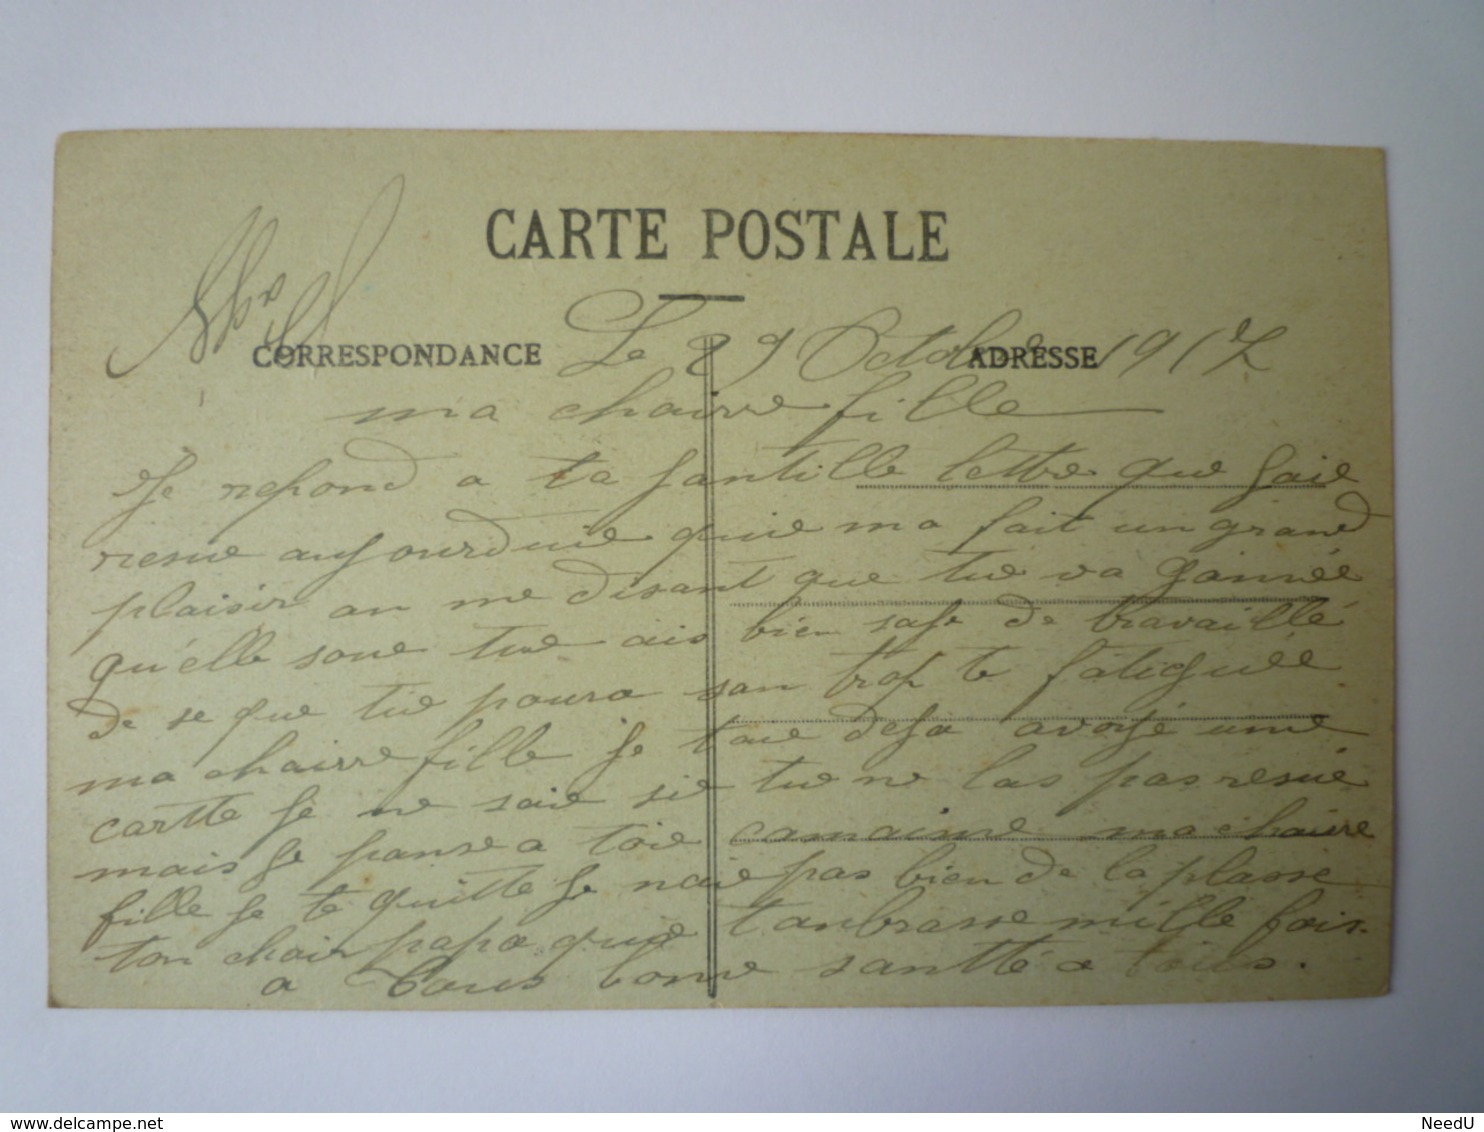 CARTE POSTALE
CORRESPONDANCE
ADRESSE
Le 29 Octobre 1917
ma chairre fille
Je repond a ta gantille lettre que gaie
resue aujourduie quie ma fait un grand
plaisir an me disant que tue va
qu'elle soue tue ais bien safe de travaillé
de se que tue poura san trop te fatiguée
ma chairre fille je taie deja avoyé une
cartte je ne saie sie tue ne las pas resue
mais je panse a toie ma chaire
fille je te quitte je naie pas bien de la plasse
ton chair papa quie tanbrasse mille fois.
a tous bonne santté a tous.
NeedU
www.delcampe.net